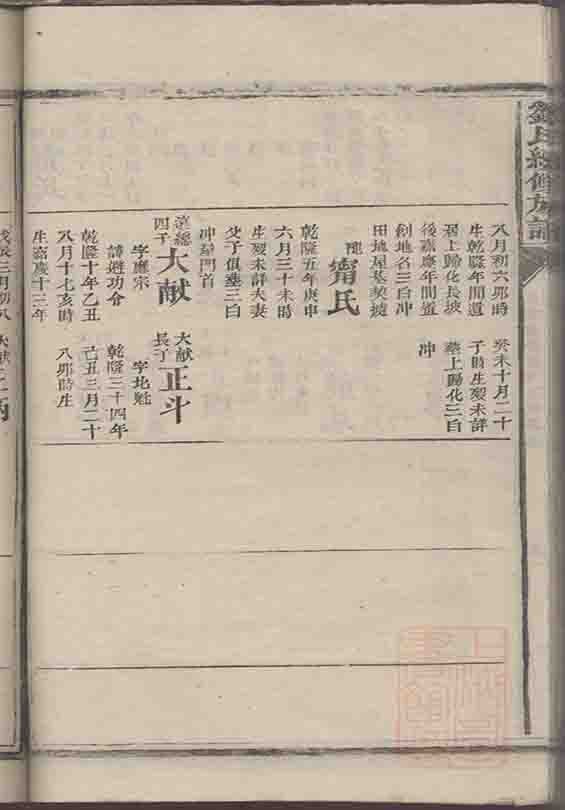 八月初六卯時
生乾隆年間遷
居上歸化長坡
後嘉慶年間遷
創地名三臼冲
田地屋基葬墳
甯氏
乾隆五年庚申
六月三十未時
生歿未詳夫妻
父子俱塟三臼
冲屋門首
癸未十月二十
子時生歿未詳
塟上歸化三臼
冲
四子
大献
字應宗
諱避功令
乾隆十年乙丑
八月十七亥時
生嘉慶十三年
大献
長子
正斗
字北魁
乾隆三十四年
己丑三月二十
八卯時生
戊辰三月初八
大献